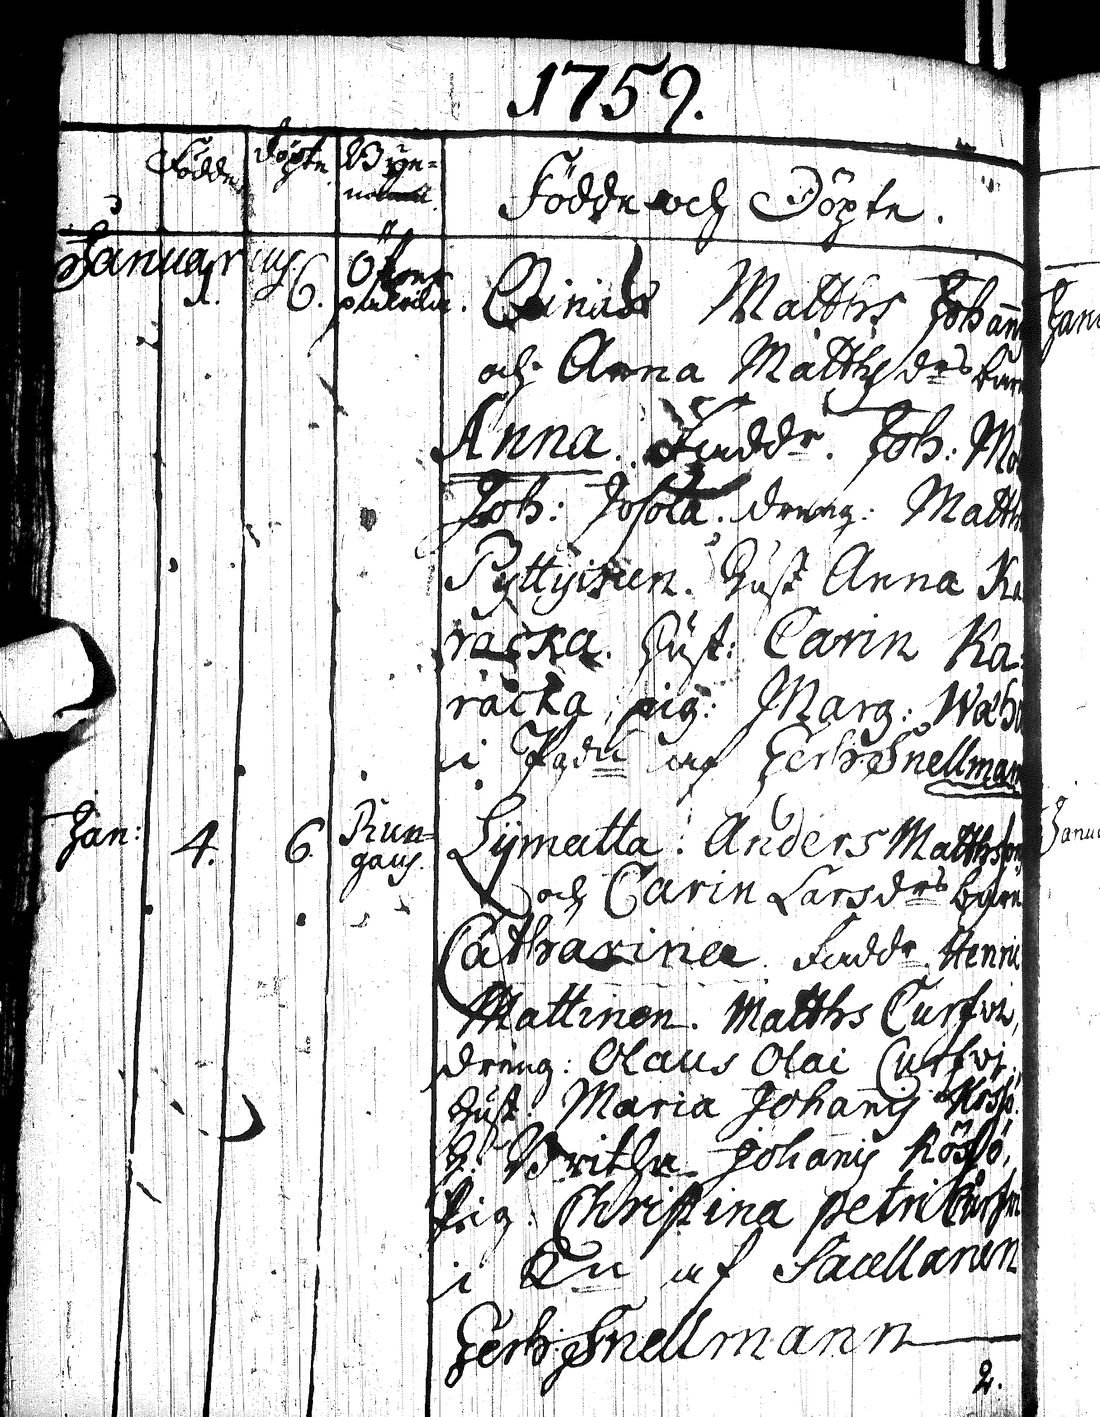 1759.
Födde Döpte Bye- Födde och Döpte.
Januarius
1. 6. Matths Johan
och Anna Matthsdrs barn
Anna. Faddr. Joh: Ma
Joh: dräng: Matth
Pyttyinen. Hust Anna Ka
racka. Hust: Carin Ka-
racka, pig: Marg: Wäh
i af Gerh: Snellman
Jan: 4. 6. Kun-
gaus. Lijmatta: Anders Matthson
och Carin Larsdrs barn
Catharina. Faddr. Henric
Mattinen. Matths Curfvi,
dräng: Olaus Olai Curfvi.
Hust: Maria Johanis
H: Britha Johanis Kössö,
Pig: Christina Petri Curfvi
i af Sacellanen
Gerh: Snellmann
2.